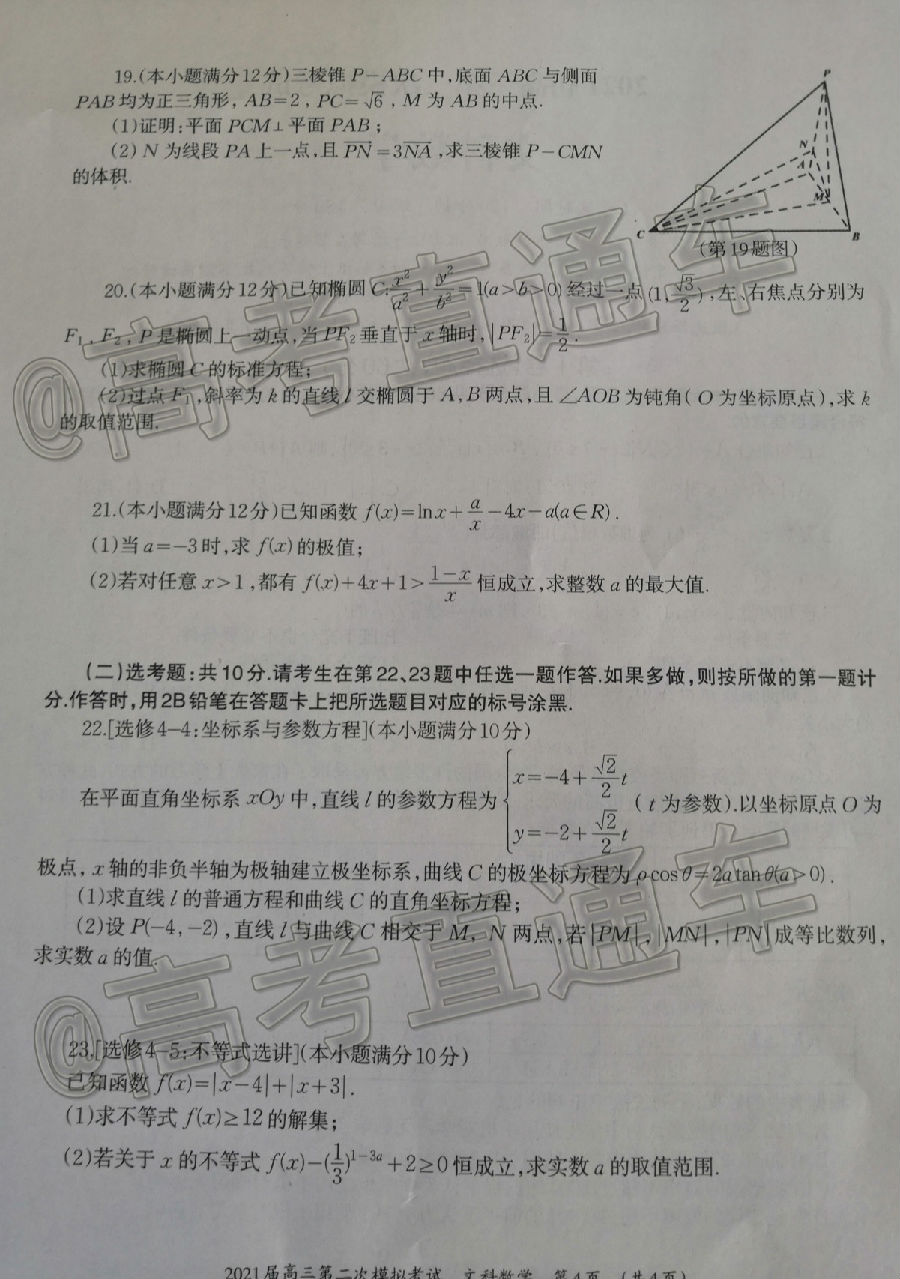 19.(本小题满分12分)三棱锥 P-ABC 中,底面 ABC 与侧面
PAB均为正三角形, AB=2 , PC=√6 , M 为 AB的中点.
(1)证明:平面 PCM⊥平面 PAB ;
(2) N 为线段 PA上一点,且 \overrightarrow{PN}=3\overrightarrow{NA} ,求三棱锥 P-CMN
的体积.
P
N
A
M
C
B
(第19题图)
20.(本小题满分12分)已知椭圆 C:x²/a²+y²/b²=1(a>b>0) 经过一点(1,√3/2),左、右焦点分别为
F₁、F₂,P是椭圆上一动点,当PF₂垂直于x轴时,|PF₂|=1/2.
(1)求椭圆C的标准方程;
(2)过点F₁,斜率为k的直线l交椭圆于A,B两点,且∠AOB为钝角(O为坐标原点),求k
的取值范围.
21.(本小题满分12分)已知函数 f(x)=lnx+a/x-4x-a(a∈R).
(1)当a=-3时,求 f(x)的极值;
(2)若对任意x>1,都有 f(x)+4x+1>(1-x)/x 恒成立,求整数a的最大值.
(二)选考题:共10分.请考生在第22、23题中任选一题作答.如果多做,则按所做的第一题计
分.作答时,用2B铅笔在答题卡上把所选题目对应的标号涂黑.
22.[选修4-4:坐标系与参数方程](本小题满分10分)
在平面直角坐标系 xOy 中,直线l的参数方程为{x=-4+(√2/2)t
y=-2+(√2/2)t (t为参数).以坐标原点O为
极点, x轴的非负半轴为极轴建立极坐标系,曲线C的极坐标方程为ρcosθ=2atanθ(a>0).
(1)求直线l的普通方程和曲线C的直角坐标方程;
(2)设P(-4,-2),直线l与曲线C相交于M, N两点,若|PM|,|MN|,|PN|成等比数列,
求实数a的值.
23.[选修4-5:不等式选讲](本小题满分10分)
已知函数 f(x)=|x-4|+|x+3|.
(1)求不等式 f(x)≥12的解集;
(2)若关于x的不等式 f(x)-(1/3)^{1-3a}+2≥0恒成立,求实数a的取值范围.
2021届高三第二次模拟考试 文科数学 第4页 (共4页)
@高考直通车
@高考直通车